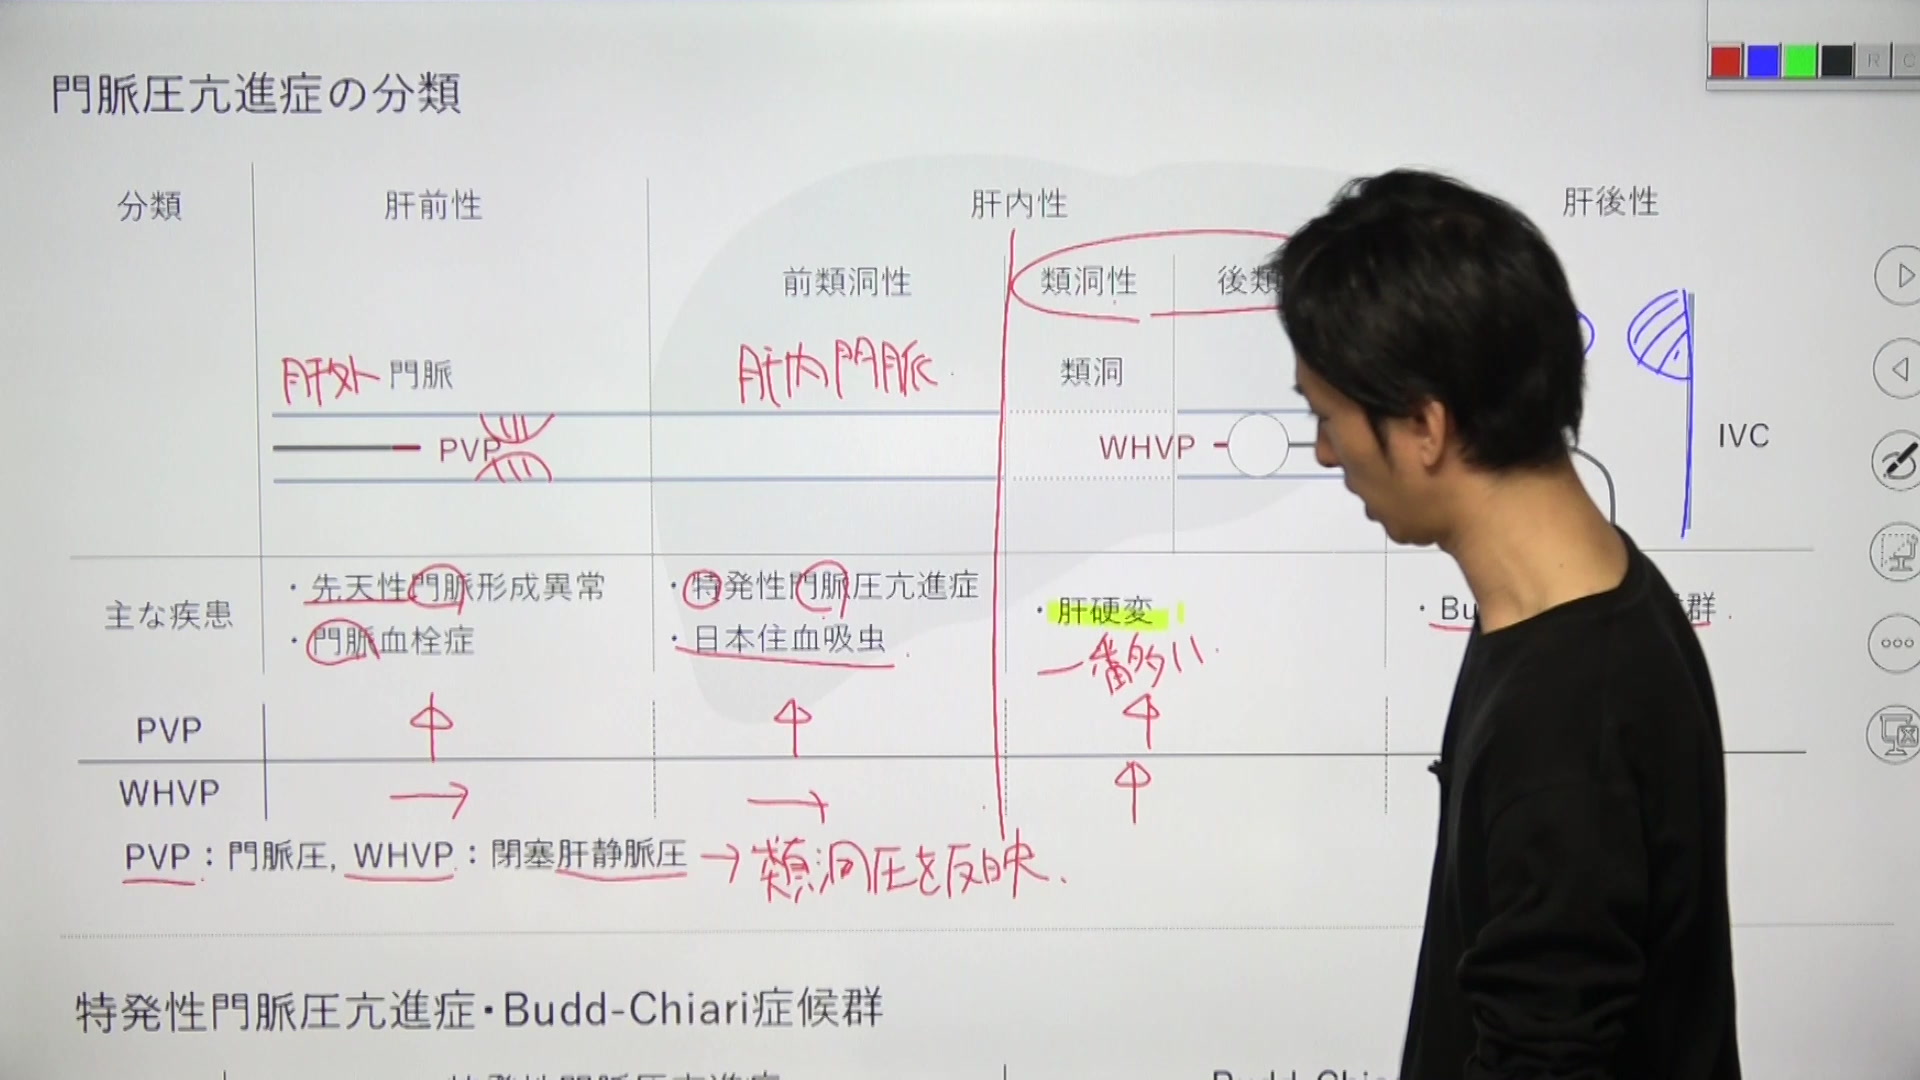 門脈圧亢進症の分類
R C
分類 肝前性 肝内性 肝後性
前類洞性 類洞性 後類
肝外 門脈 肝内門脈 類洞
PVP WHVP IVC
主な疾患
・先天性門脈形成異常
・門脈血栓症
・特発性門脈圧亢進症
・日本住血吸虫
・肝硬変
一番多い
・Bu 群
PVP ↑ ↑ ↑
WHVP → → ↑
PVP：門脈圧, WHVP：閉塞肝静脈圧 → 類洞圧を反映.
特発性門脈圧亢進症・Budd-Chiari症候群